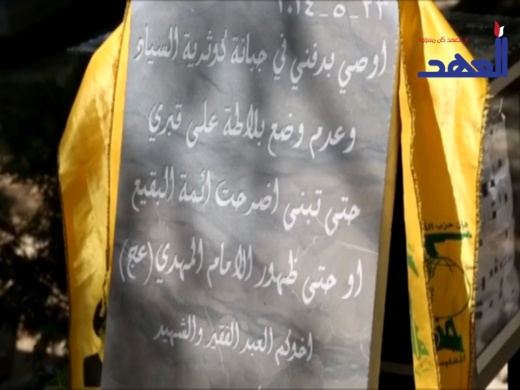 ٢٣_٥_٢٠١٤
اوصي بدفني في جبانة كوثرية السياد
وعدم وضع بلاطة على قبري
حتى تبنى اضرحت ائمة البقيع
او حتى ظهور الامام المهدي (عج)
اخوكم العبد الفقير والشهيد
العهد
فإن حزب الله